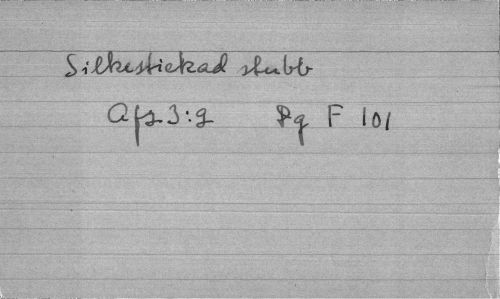 Silkestickad stubb
Afz 3:9 Pg F 101